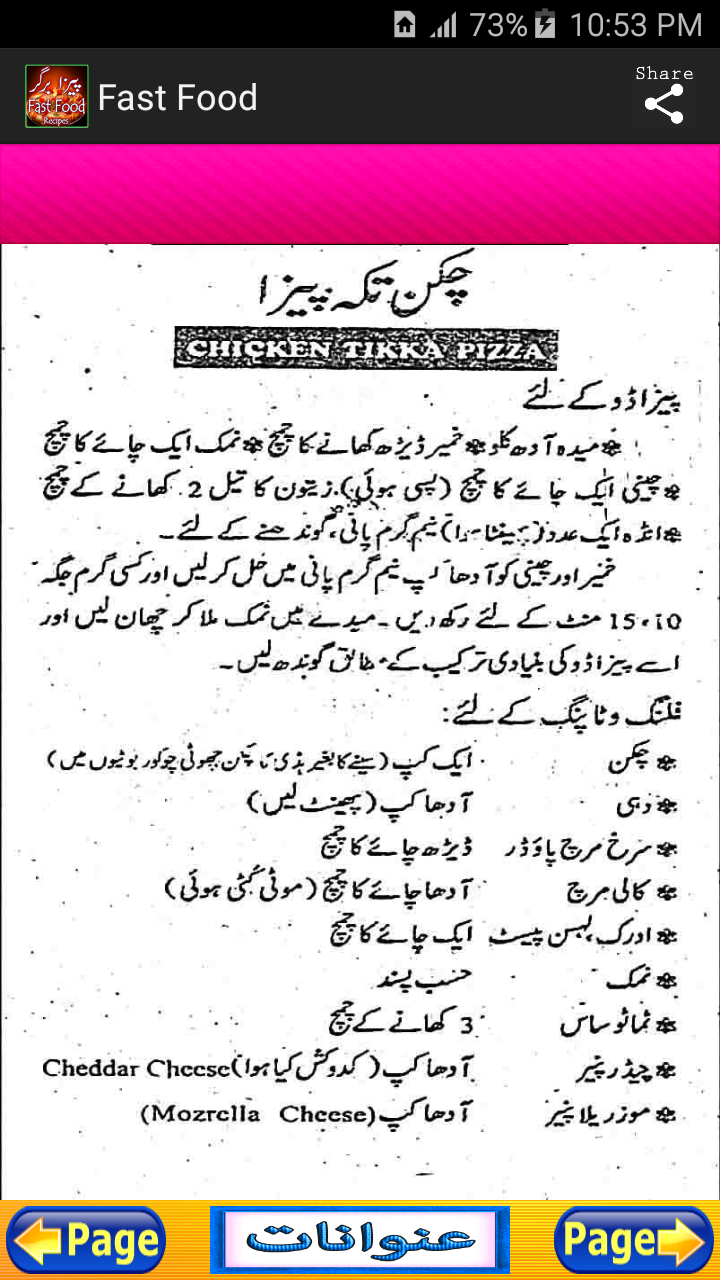 73% 10:53 PM
پیزا برگر
Fast Food
Recipes
Fast Food
Share
چکن تکہ پیزا
CHICKEN TIKKA PIZZA
پیزا ڈو کے لئے
❀میدہ آدھ کلو❀خمیر ڈیڑھ کھانے کا چمچ❀نمک ایک چائے کا چمچ
❀چینی ایک چائے کا چمچ (پسی ہوئی).زیتون کا تیل 2 کھانے کے چمچ
❀انڈہ ایک عدد(پھینٹا ہوا)نیم گرم پانی،گوندھنے کے لئے۔
خمیر اور چینی کو آدھا کپ نیم گرم پانی میں حل کر لیں اور کسی گرم جگہ
10،15 منٹ کے لئے رکھ دیں۔میدے میں نمک ملا کر چھان لیں اور
اسے پیزا ڈو کی بنیادی ترکیب کے مطابق گوندھ لیں۔
فلنگ وٹاپنگ کے لئے:
❀ چکن ایک کپ (سینے کا بغیر ہڈی کا چکن چھوٹی چوکور بوٹیوں میں)
❀دہی آدھا کپ (پھینٹ لیں)
❀ سرخ مرچ پاؤڈر ڈیڑھ چائے کا چمچ
❀ کالی مرچ آدھا چائے کا چمچ (موٹی کُٹی ہوئی)
❀ ادرک لہسن پیسٹ ایک چائے کا چمچ
❀ نمک حسب پسند
❀ ٹماٹو ساس 3 کھانے کے چمچ
❀ چیڈر پنیر آدھا کپ (کدوکش کیا ہوا)Cheddar Cheese
❀ موزریلا پنیر آدھا کپ(Mozrella Cheese)
Page عنوانات Page